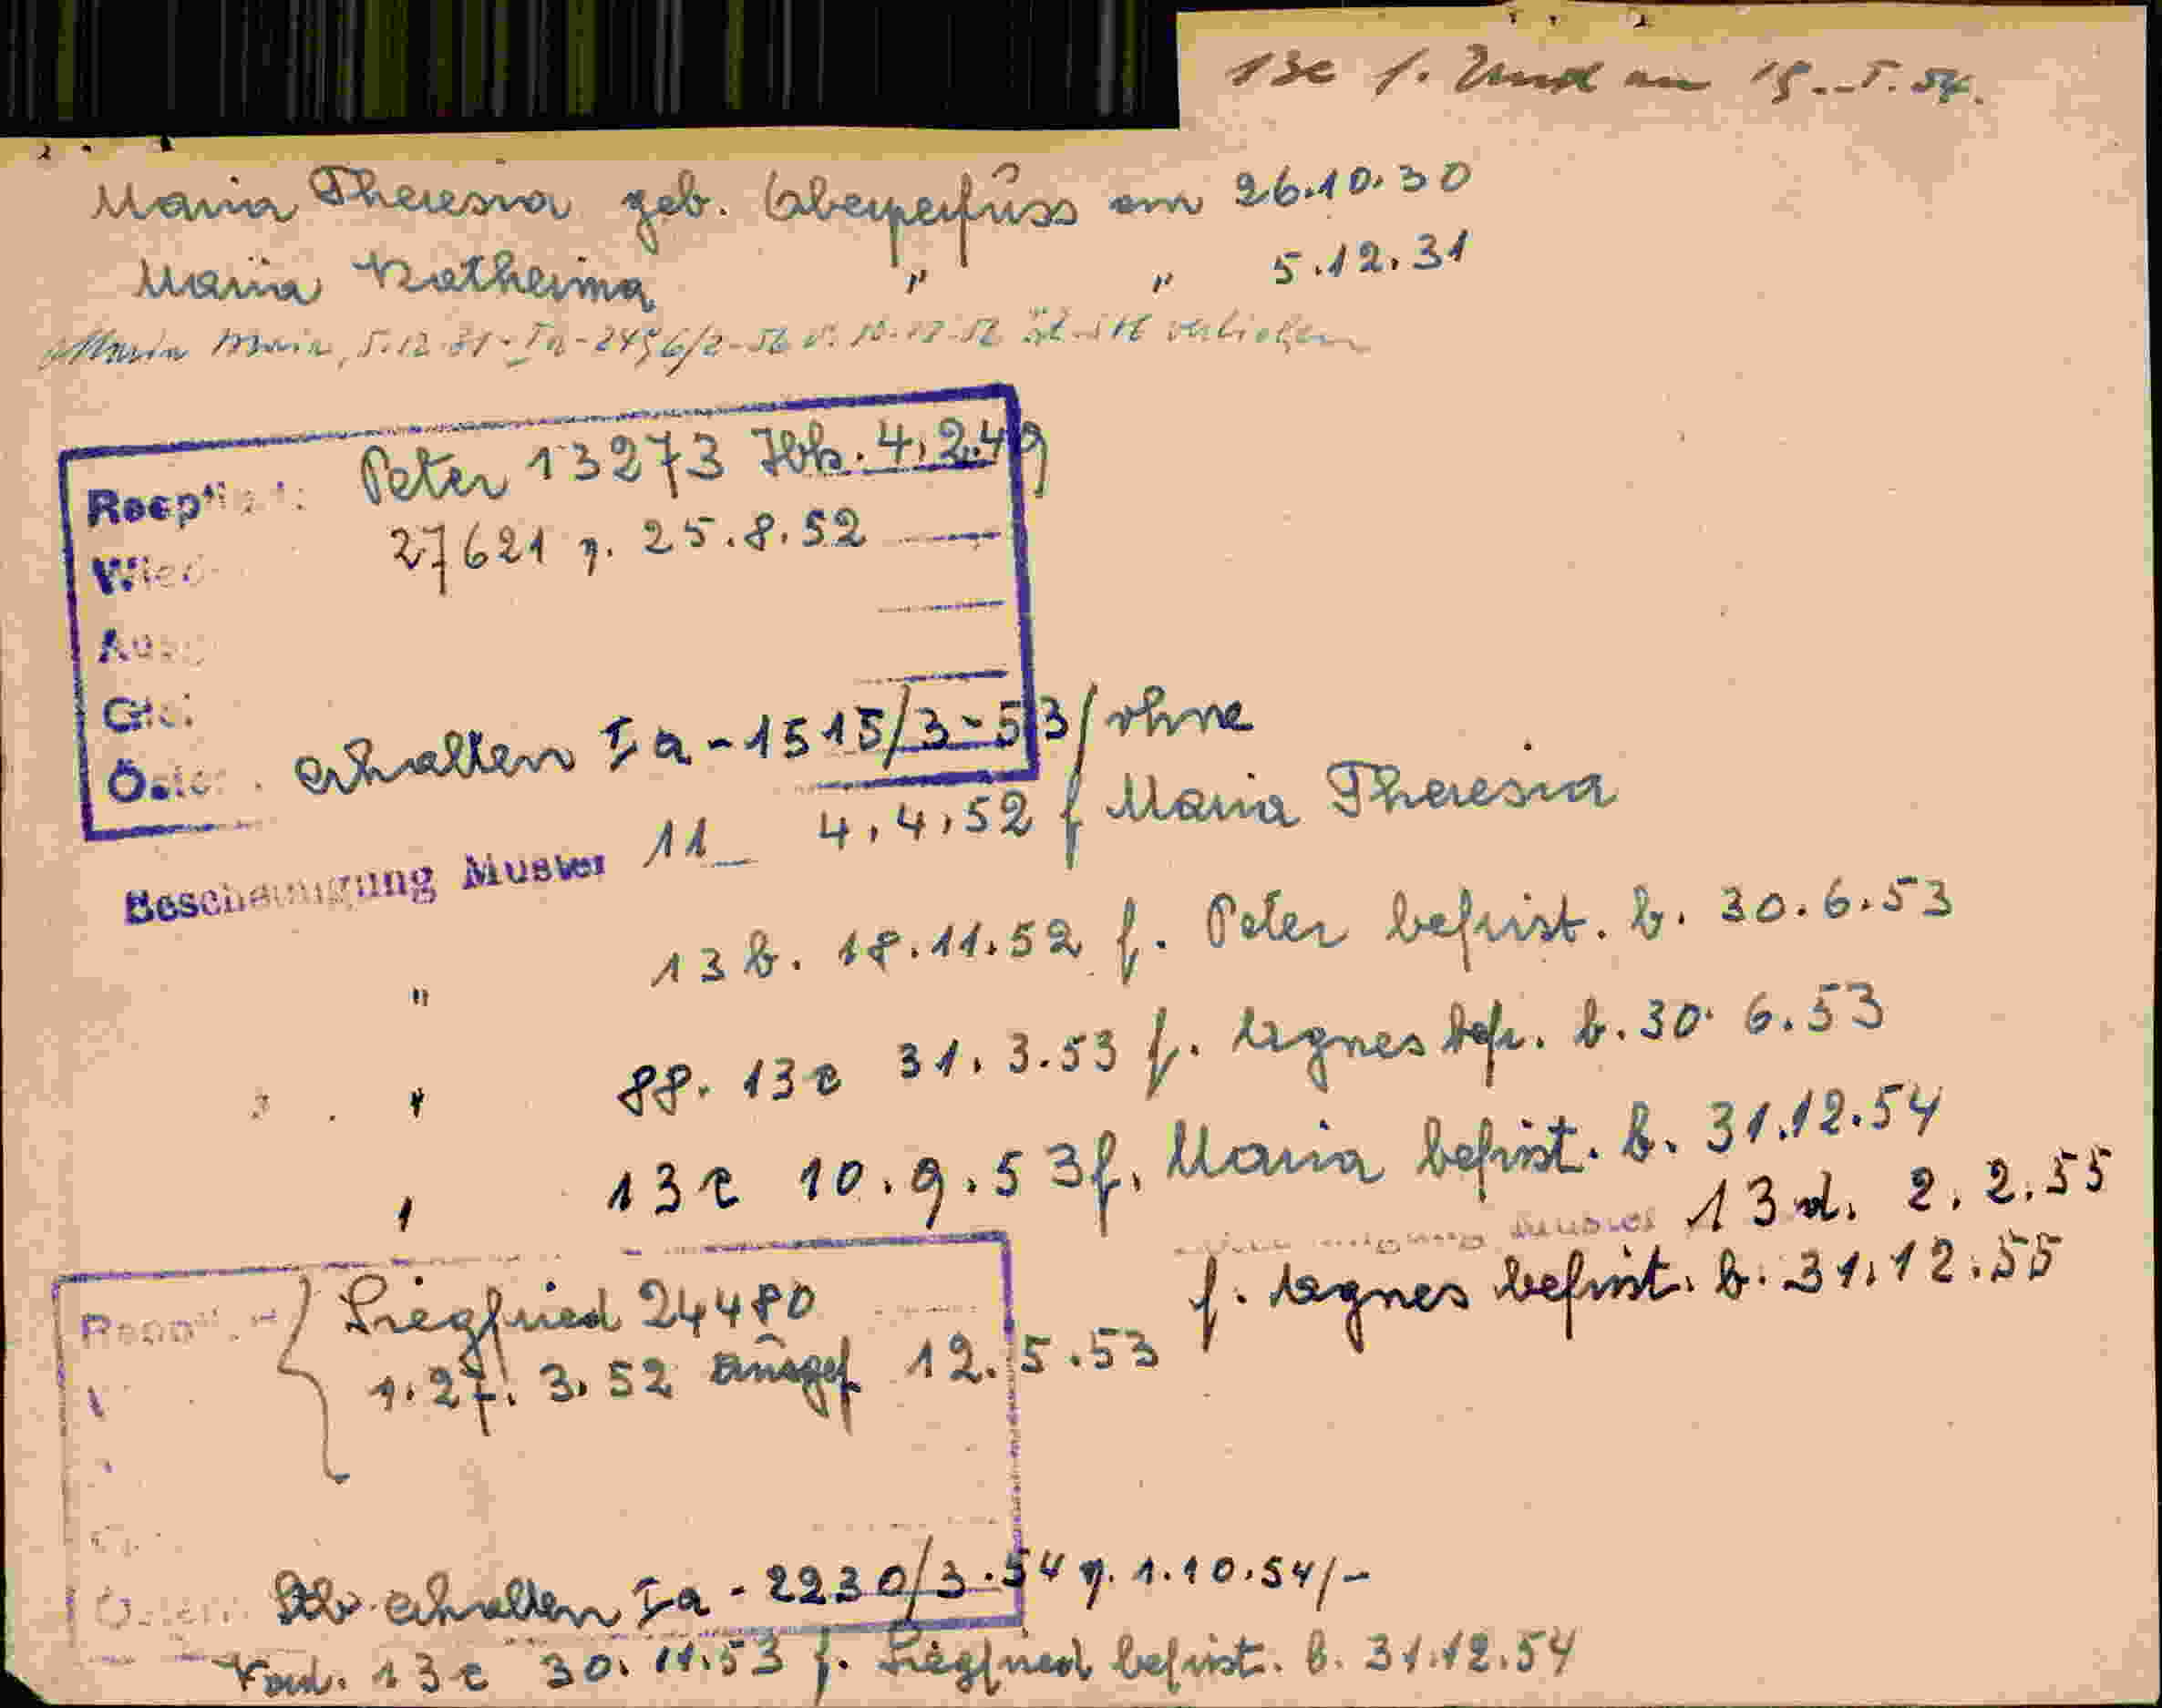 13c f. am 15.5.54.
Maria Theresia geb. Oberperfuss am 26.10.30
Maria Katharina " " 5.12.31
Maria 5.12.31 - Ia - 2456/2-52 v. 10.12.52 verliehen
Peter 13273 Ibk. 4.2.49
27621 v. 25.8.52
erhalten Ia - 1515/3-53/ohne
Bescheinigung Muster 11 4.4.52 f Maria Theresia
" 13b. 18.11.52 f. Peter befrist. b. 30.6.53
" 88. 13c 31.3.53 f. Agnes befr. b. 30.6.53
" 13c 10.9.53 f. Maria befrist. b. 31.12.54
Muster 13d. 2.2.55
f. Agnes befrist. b. 31.12.55
Siegfried 24480
v. 27.3.52 ausgef 12.5.53
Stb. erhalten Ia - 2230/3-54 v. 1.10.54/-
13c 30.11.53 f. Siegfried befrist. b. 31.12.54